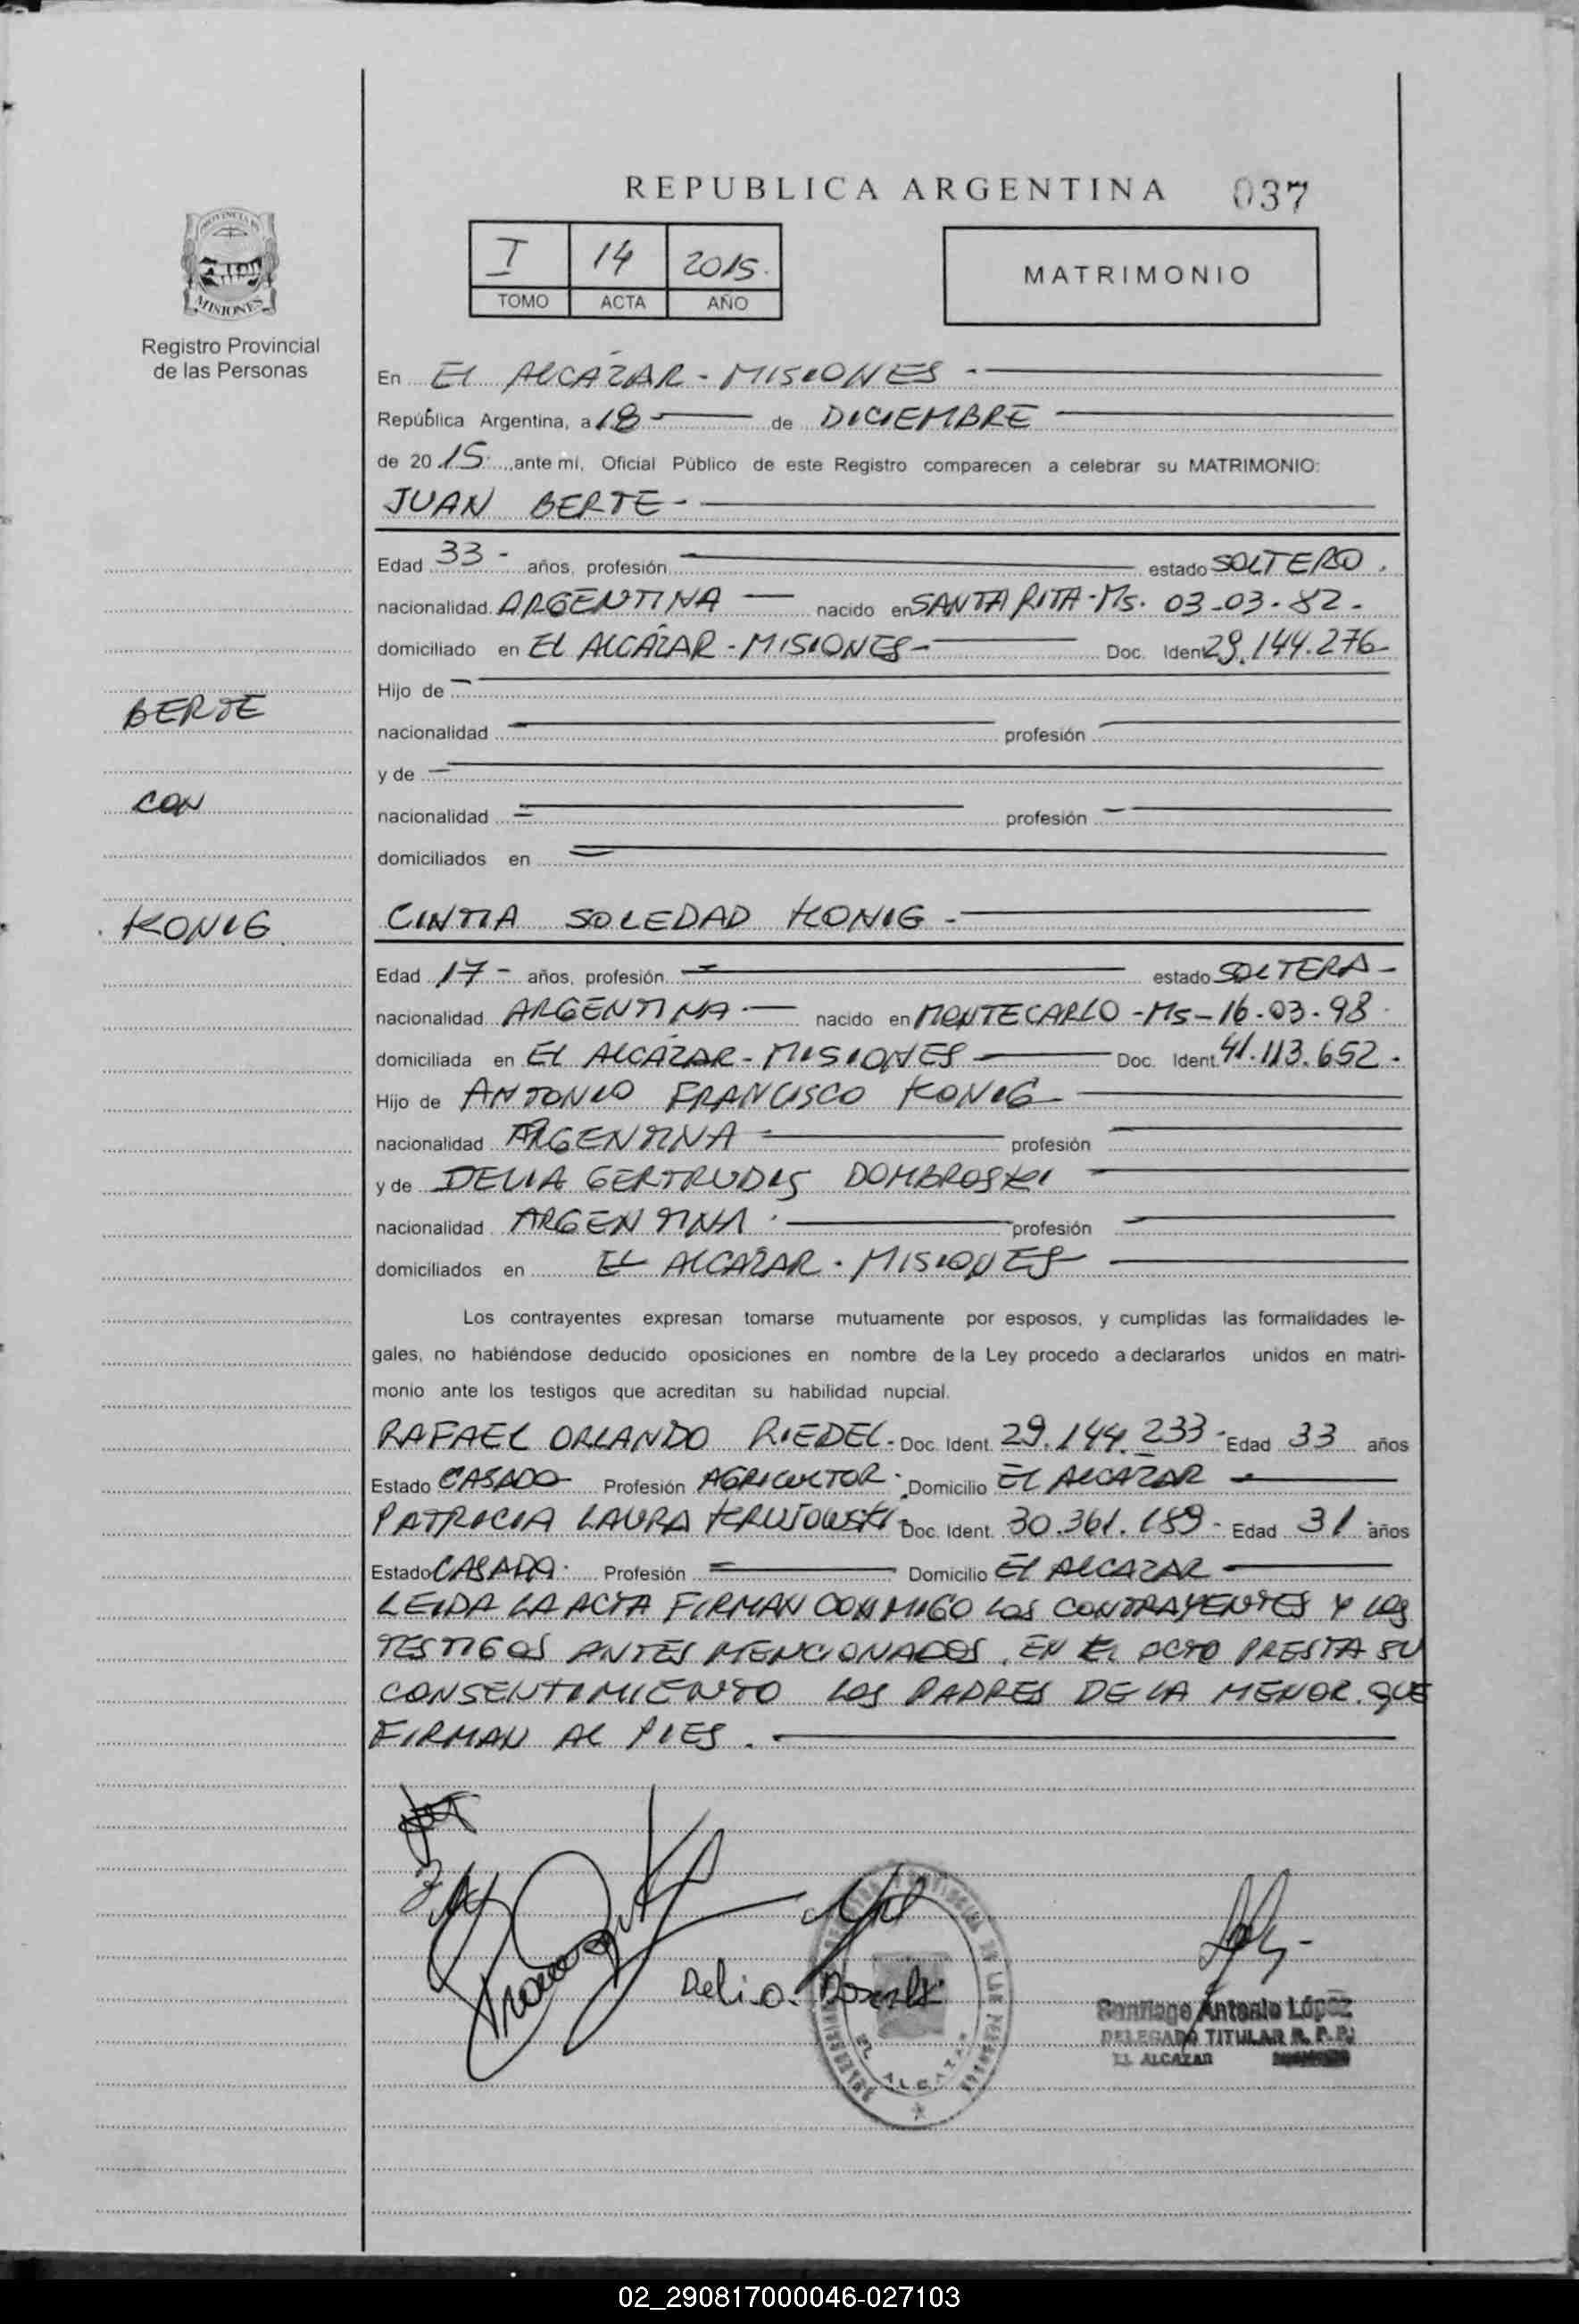 REPUBLICA ARGENTINA 037
I 14 2015.
TOMO ACTA AÑO
MATRIMONIO
PROVINCIA DE
MISIONES
Registro Provincial
de las Personas
En EL ALCAZAR - MISIONES -
República Argentina, a 18 de DICIEMBRE
de 2015 ante mi, Oficial Público de este Registro comparecen a celebrar su MATRIMONIO:
JUAN BERTE -
Edad 33 - años, profesión estado SOLTERO.
nacionalidad ARGENTINA — nacido en SANTA RITA - Ms. 03-03-82-
domiciliado en EL ALCAZAR - MISIONES - Doc. Ident 29.144.276-
Hijo de
nacionalidad profesión
y de
nacionalidad profesión
domiciliados en
BERTE
CON
KONIG
CINTIA SOLEDAD KONIG -
Edad 17 - años, profesión estado SOLTERA -
nacionalidad ARGENTINA - nacido en MONTECARLO - Ms - 16-03-98
domiciliada en EL ALCAZAR - MISIONES Doc. Ident. 41.113.652-
Hijo de ANTONIO FRANCISCO KONIG
nacionalidad ARGENTINA profesión
y de DELIA GERTRUDIS DOMBROSKI
nacionalidad ARGENTINA profesión
domiciliados en EL ALCAZAR - MISIONES
Los contrayentes expresan tomarse mutuamente por esposos, y cumplidas las formalidades le-
gales, no habiéndose deducido oposiciones en nombre de la Ley procedo a declararlos unidos en matri-
monio ante los testigos que acreditan su habilidad nupcial.
RAFAEL ORLANDO RIEDEL - Doc. Ident. 29.144.233 - Edad 33 años
Estado CASADO Profesión AGRICULTOR. Domicilio EL ALCAZAR
PATRICIA LAURA Doc. Ident. 30.361.189 - Edad 31 años
Estado CASADA. Profesión Domicilio EL ALCAZAR
LEIDA LA ACTA FIRMAN CONMIGO LOS CONTRAYENTES Y LOS
TESTIGOS ANTES MENCIONADOS. EN EL ACTO PRESTA SU
CONSENTIMIENTO LOS PADRES DE LA MENOR. QUE
FIRMAN AL PIES.
Delia
EL ALCAZAR
Santiago Antonio López
DELEGADO TITULAR R. P. P.
EL ALCAZAR
02_290817000046-027103